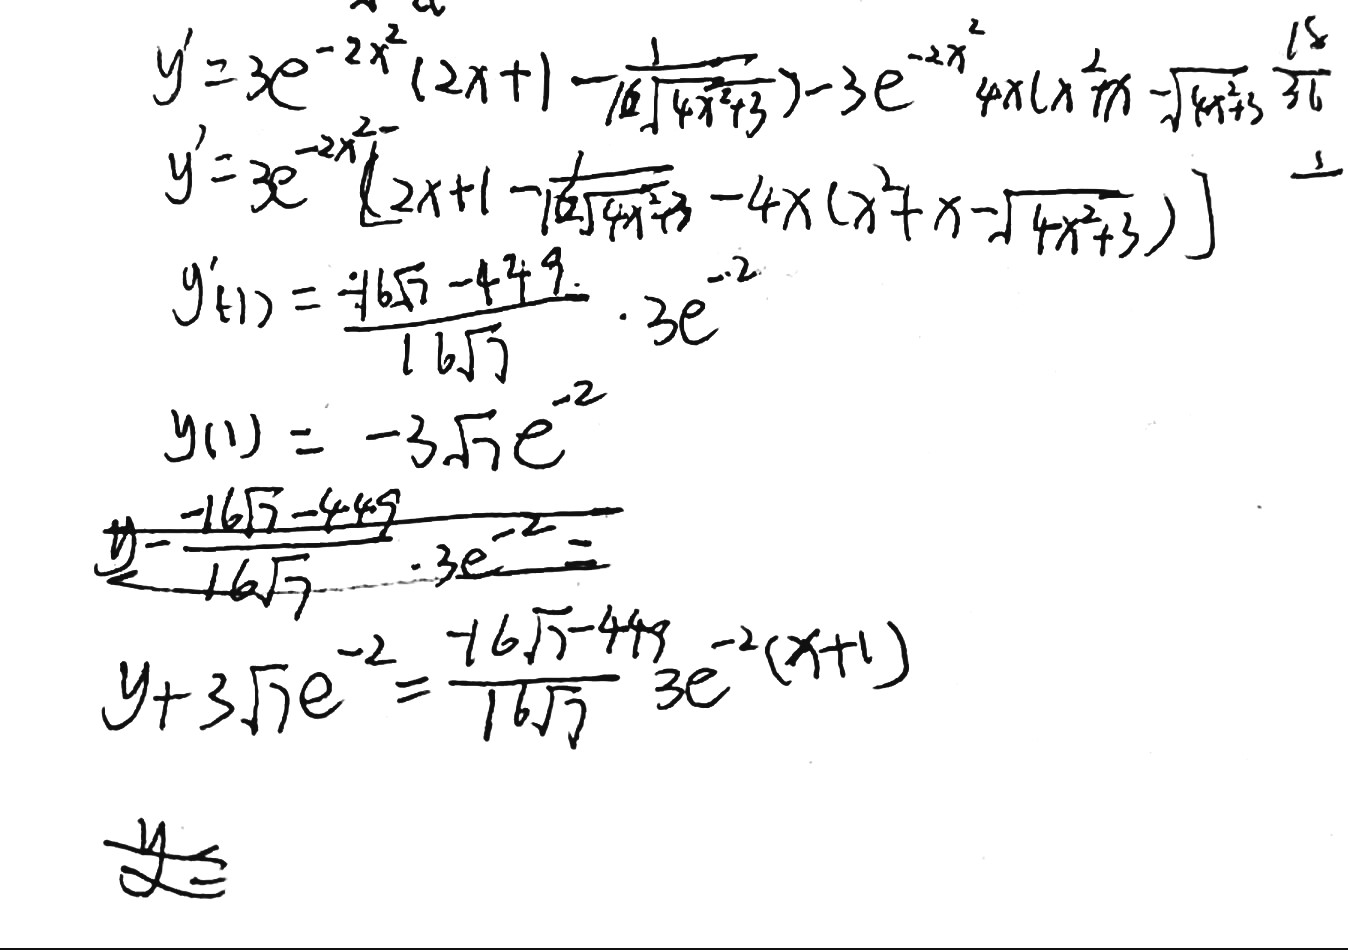 y' = 3e^{-2x^2}(2x+1 - \frac{1}{16\sqrt{4x^2+3}}) - 3e^{-2x^2}4x(x^2+x-\sqrt{4x^2+3} \frac{15}{36}
y' = 3e^{-2x^2}[2x+1 - \frac{1}{16\sqrt{4x^2+3}} - 4x(x^2+x-\sqrt{4x^2+3})]
y'(-1) = \frac{-16\sqrt{7}-449}{16\sqrt{7}} \cdot 3e^{-2}
y(1) = -3\sqrt{7}e^{-2}
y - \frac{-16\sqrt{7}-449}{16\sqrt{7}} \cdot 3e^{-2} =
y+3\sqrt{7}e^{-2} = \frac{-16\sqrt{7}-449}{16\sqrt{7}} 3e^{-2}(x+1)
y =